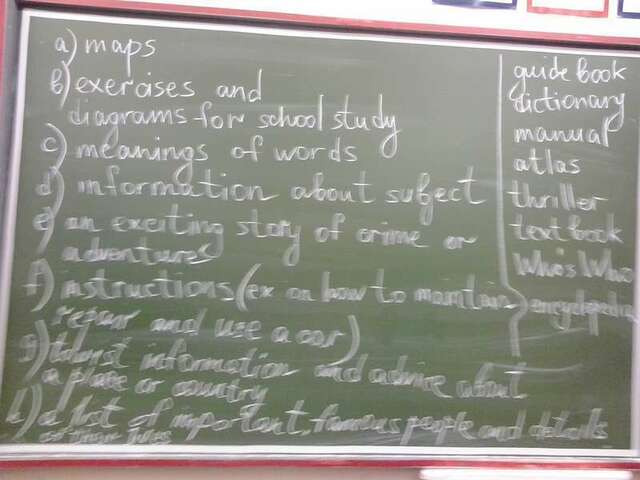 a) maps
b) exercises and
diagrams for school study
c) meanings of words
d) information about subject
e) an exciting story of crime or
adventures
f) instructions (ex on how to maintain
repair and use a car)
g) tourist information and advice about
a place or country
h) a list of important, famous people and details
of their lives
guide book
dictionary
manual
atlas
thriller
text book
Who's Who
encyclopedia